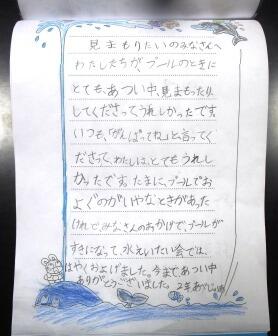 見まもりたいのみなさんへ
わたしたちが、プールのときに
とても、あつい中、見まもったり
してくださってうれしかったです。
いつも、「がんばってね」と言ってく
ださって、わたしは、とてもうれし
かったです。たまに、プールでお
よぐのがいやなときがあった
けれど、みなさんのおかげで、プールが
すきになって、水えいたい会では、
はやくおよげました。今まで、あつい中
ありがとうございました。2年